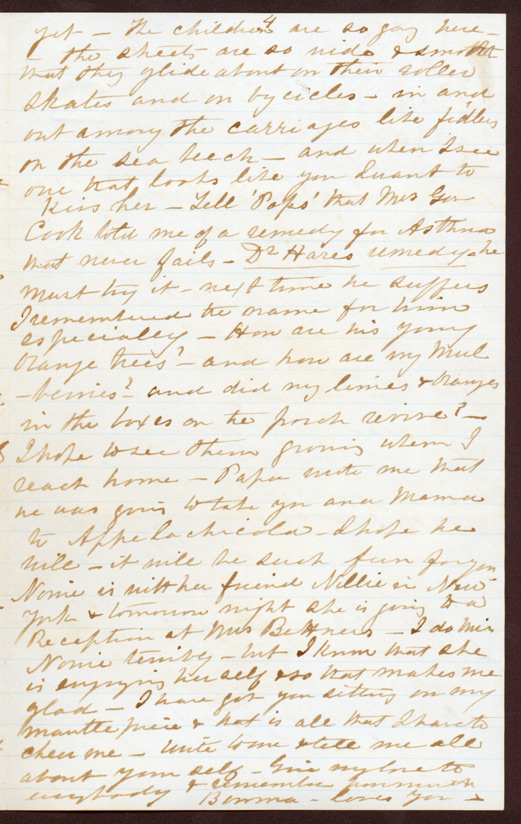 yet — the children are so gay here —
— the streets are so wide & smooth
that they glide about on their roller
skates and on bycicles — in and
out among the carriages like fidlers
on the sea beech — and when I see
one that looks like you I want to
kiss her — Tell 'Papa' that Mrs Gov
Cook told me of a remedy for Asthma
that never fails — Dr Hares remedy — he
must try it — next time he suffers
I remembered the name for him
especially — How are his young
Orange trees? — and how are my Mul
-berries? — and did my limes & oranges
in the boxes on the porch revive? —
I hope to see them growing when I
reach home — Papa wrote me that
he was going to take you and Mama
to Appelachicola — I hope he
will — it will be such fun for you
Nonie is with her friend Nellie in New
York & tomorrow night she is going to a
Reception at Mrs — I do miss
Nonie terribly — but I know that she
is enjoying herself & so that makes me
glad — I have got you sitting on my
mantle piece & that is all that I have to
cheer me — write to me & tell me all
about your self — Give my love to
everybody & remember
Bomma — loves you —